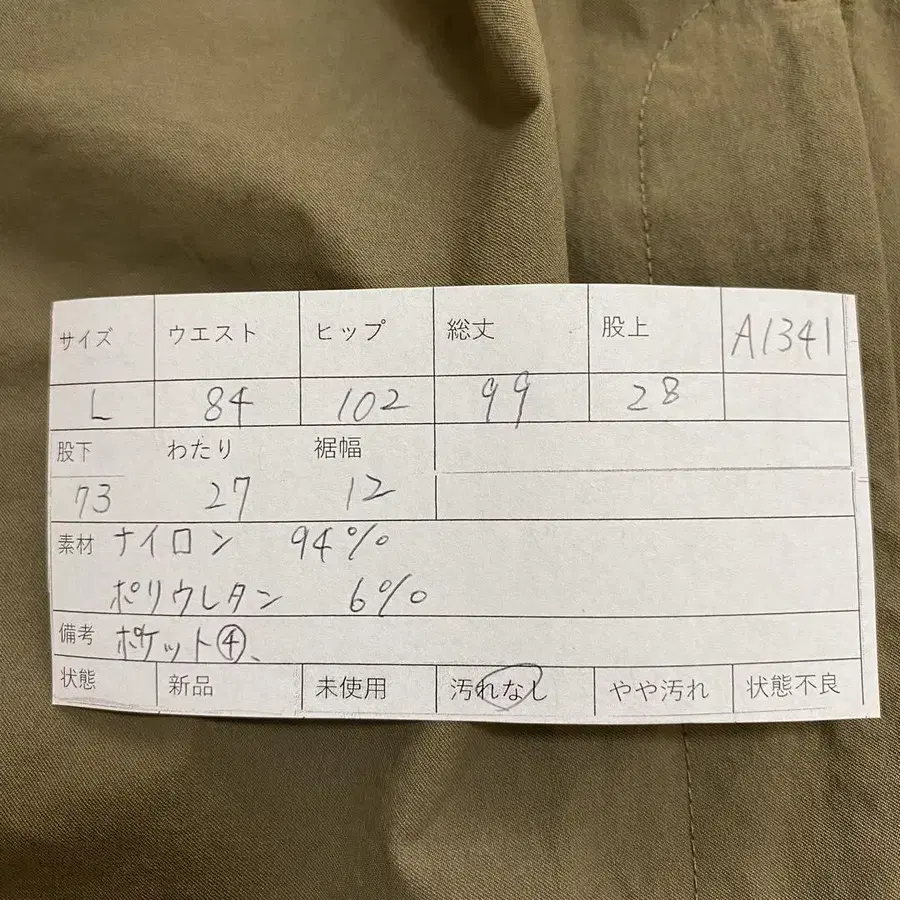 サイズ ウエスト ヒップ 総丈 股上 A1341
L 84 102 99 28
股下 わたり 裾幅
73 27 12
素材 ナイロン 94%
ポリウレタン 6%
備考 ポケット④、
状態 新品 未使用 汚れなし やや汚れ 状態不良